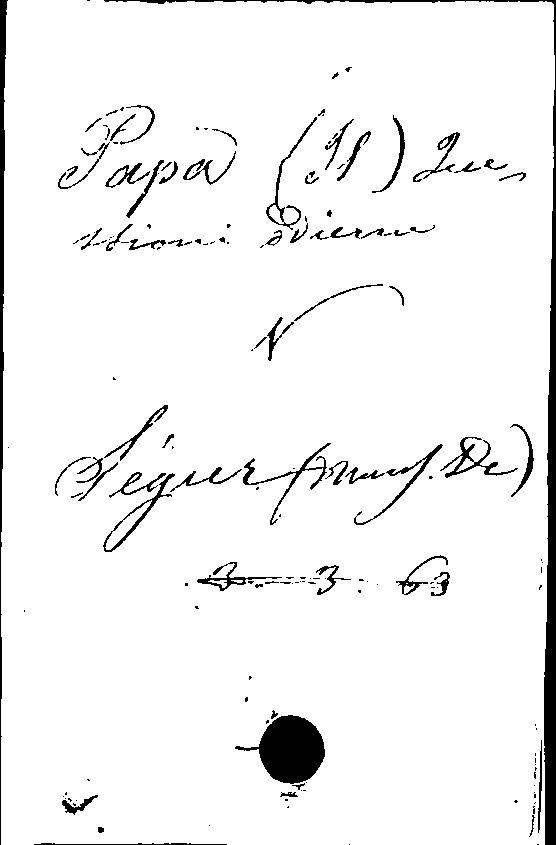 Papa (Il) Que-
stioni odierne
V
Ségur (Mons. De)
3 3. 63